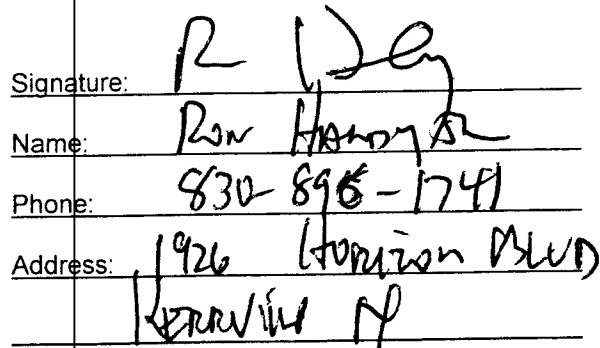 Signature: R
Name: Ron Handy
Phone: 830-896-1741
Address: 1926 Horizon BLVD
Kerrville